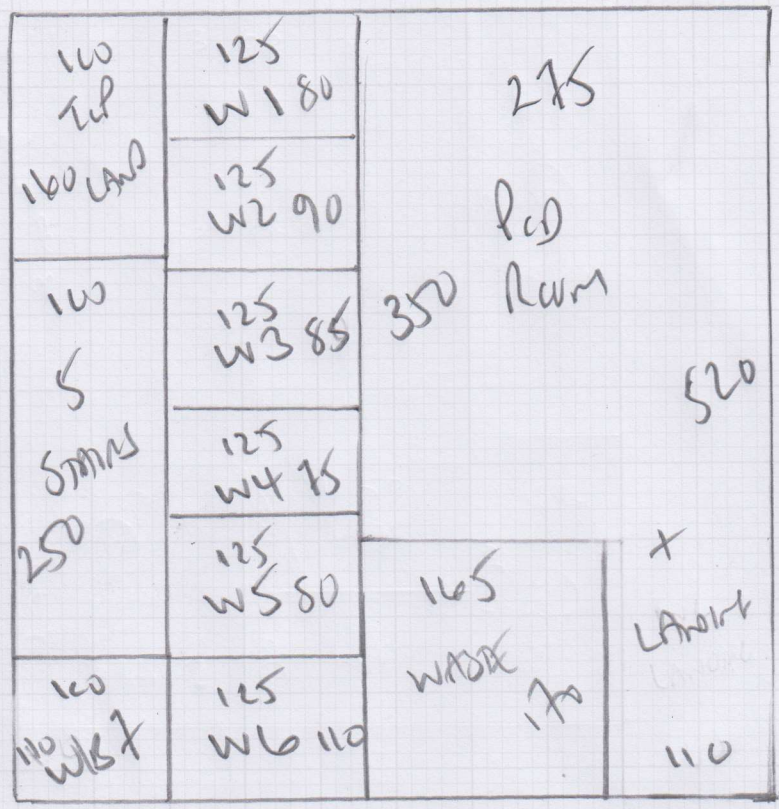 100
TOP
160 LAND
100
5
STAIRS
250
100
110
125
W1 80
125
W2 90
125
W3 85
125
W4 75
125
W5 80
125
W6 110
275
BED
350 ROOM
520
165
WASTE
170
X
LANDING
110